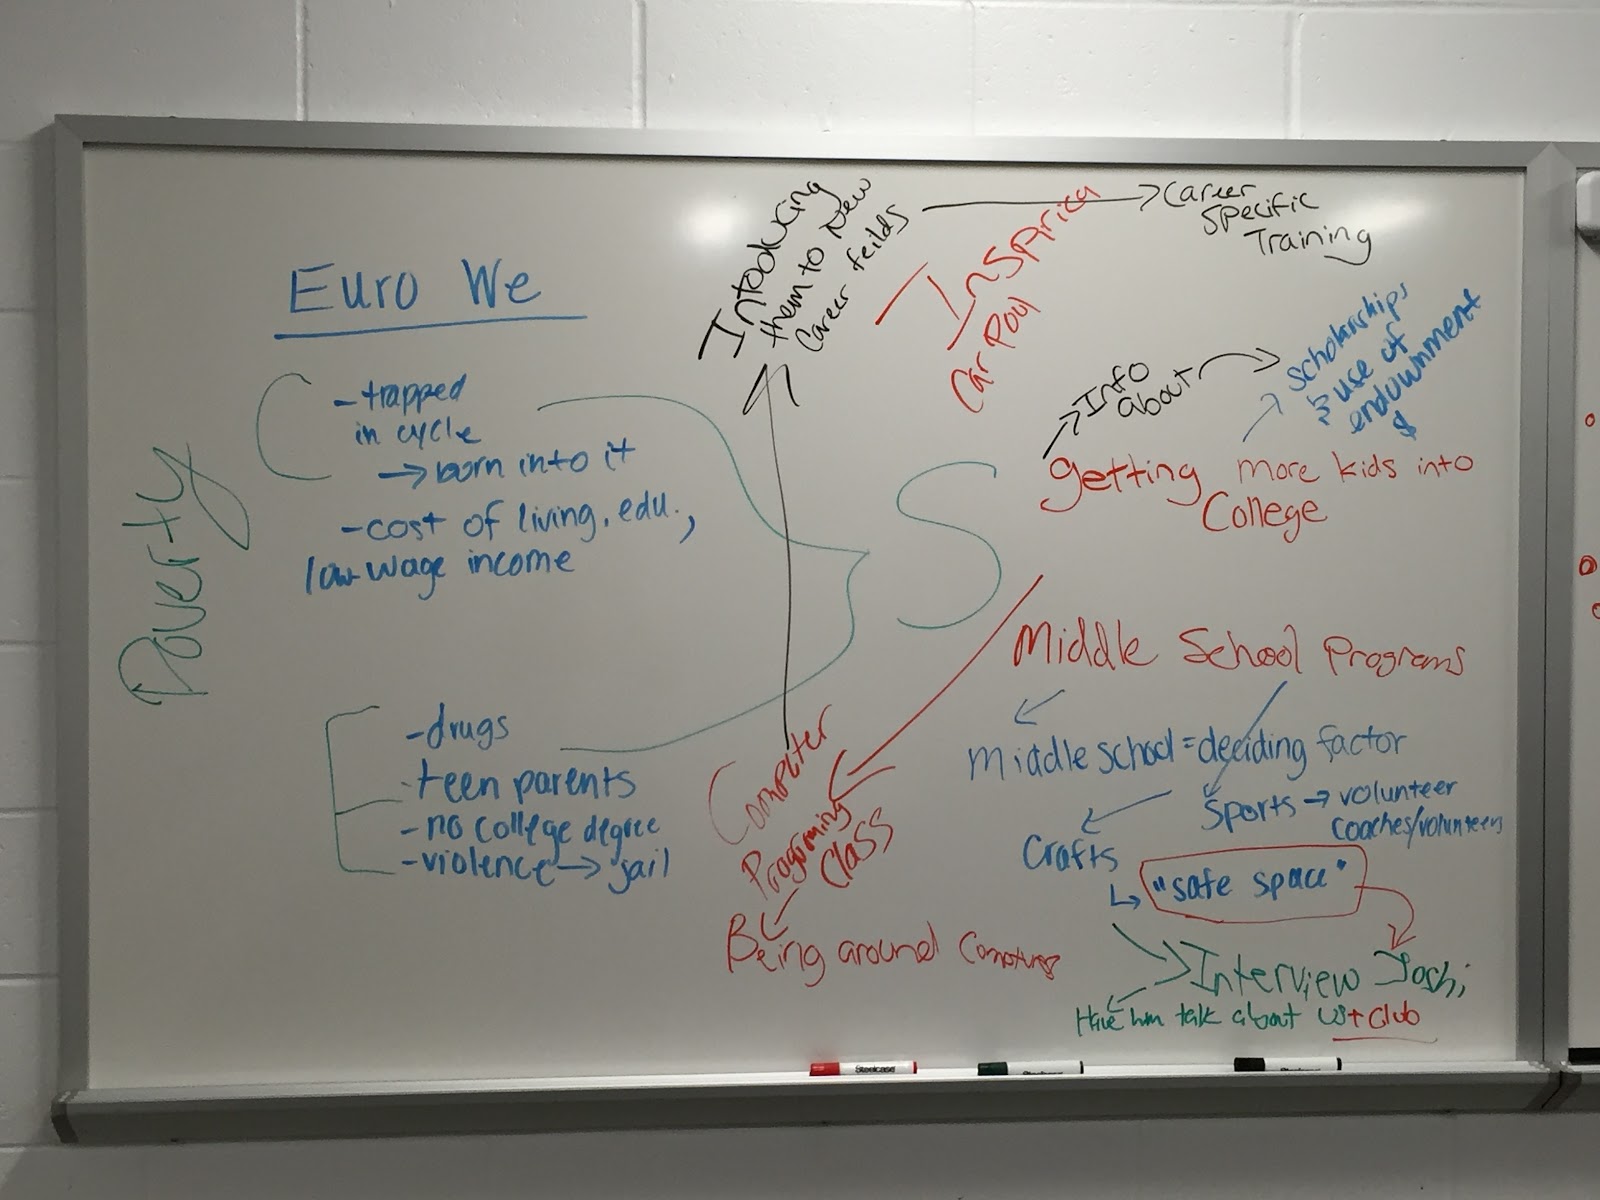 Euro We
Poverty
-trapped
in cycle
→ born into it
-cost of living, edu.,
low-wage income
-drugs
-teen parents
-no college degree
-violence → jail
S
Intoducing
them to New
Career feilds
→ Career
Specific
Training
InSPArica
Car Pool
Info
about
scholarships
& use of
endownment
$
getting more kids into
College
Middle School Programs
Middle school = deciding factor
Sports → volunteer
coaches/volunteers
Crafts
"safe space"
Interview Joshi
Have him talk about us + Club
Computer
Programing
Class
Being around
Steelcase